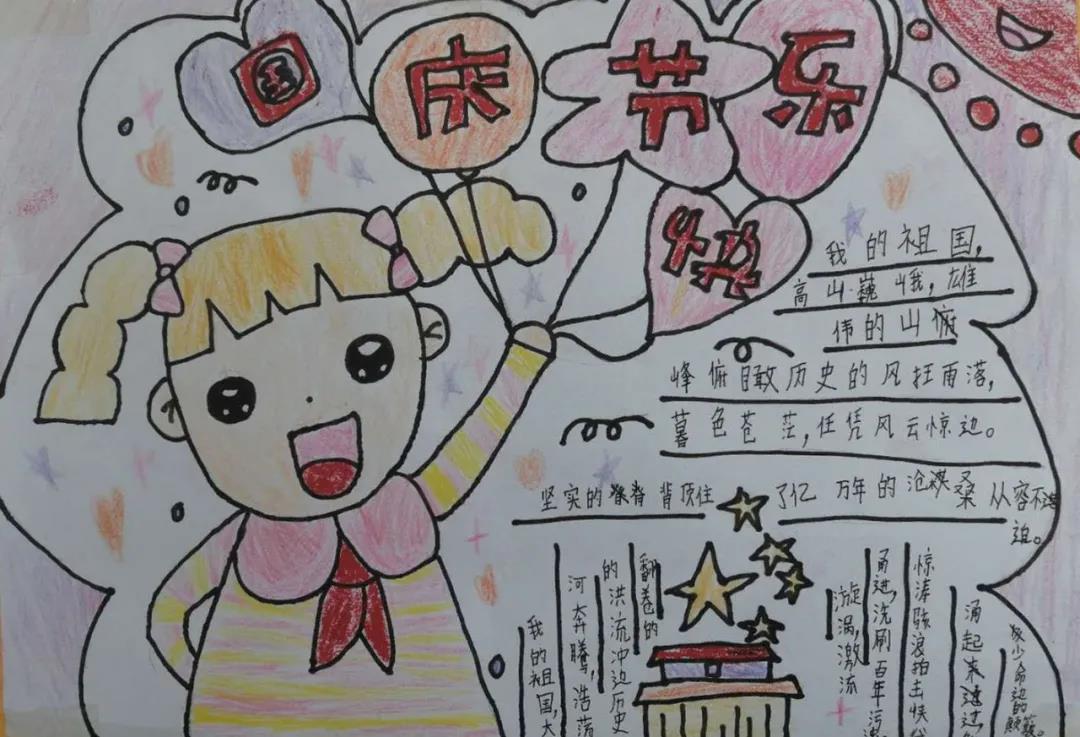 国庆节快乐
我的祖国,
高山巍峨,雄
伟的山俯
峰俯瞰历史的风狂雨落,
暮色苍茫,任凭风云惊边。
坚实的脊背顶住了亿万年的沧桑从容不迫。
我的祖国,大
河奔腾,浩荡
的洪流冲边历史
翻卷的
漩涡,激流
勇进,洗刷百年污
惊涛骇浪拍击
涌起来
命边的颠簸。